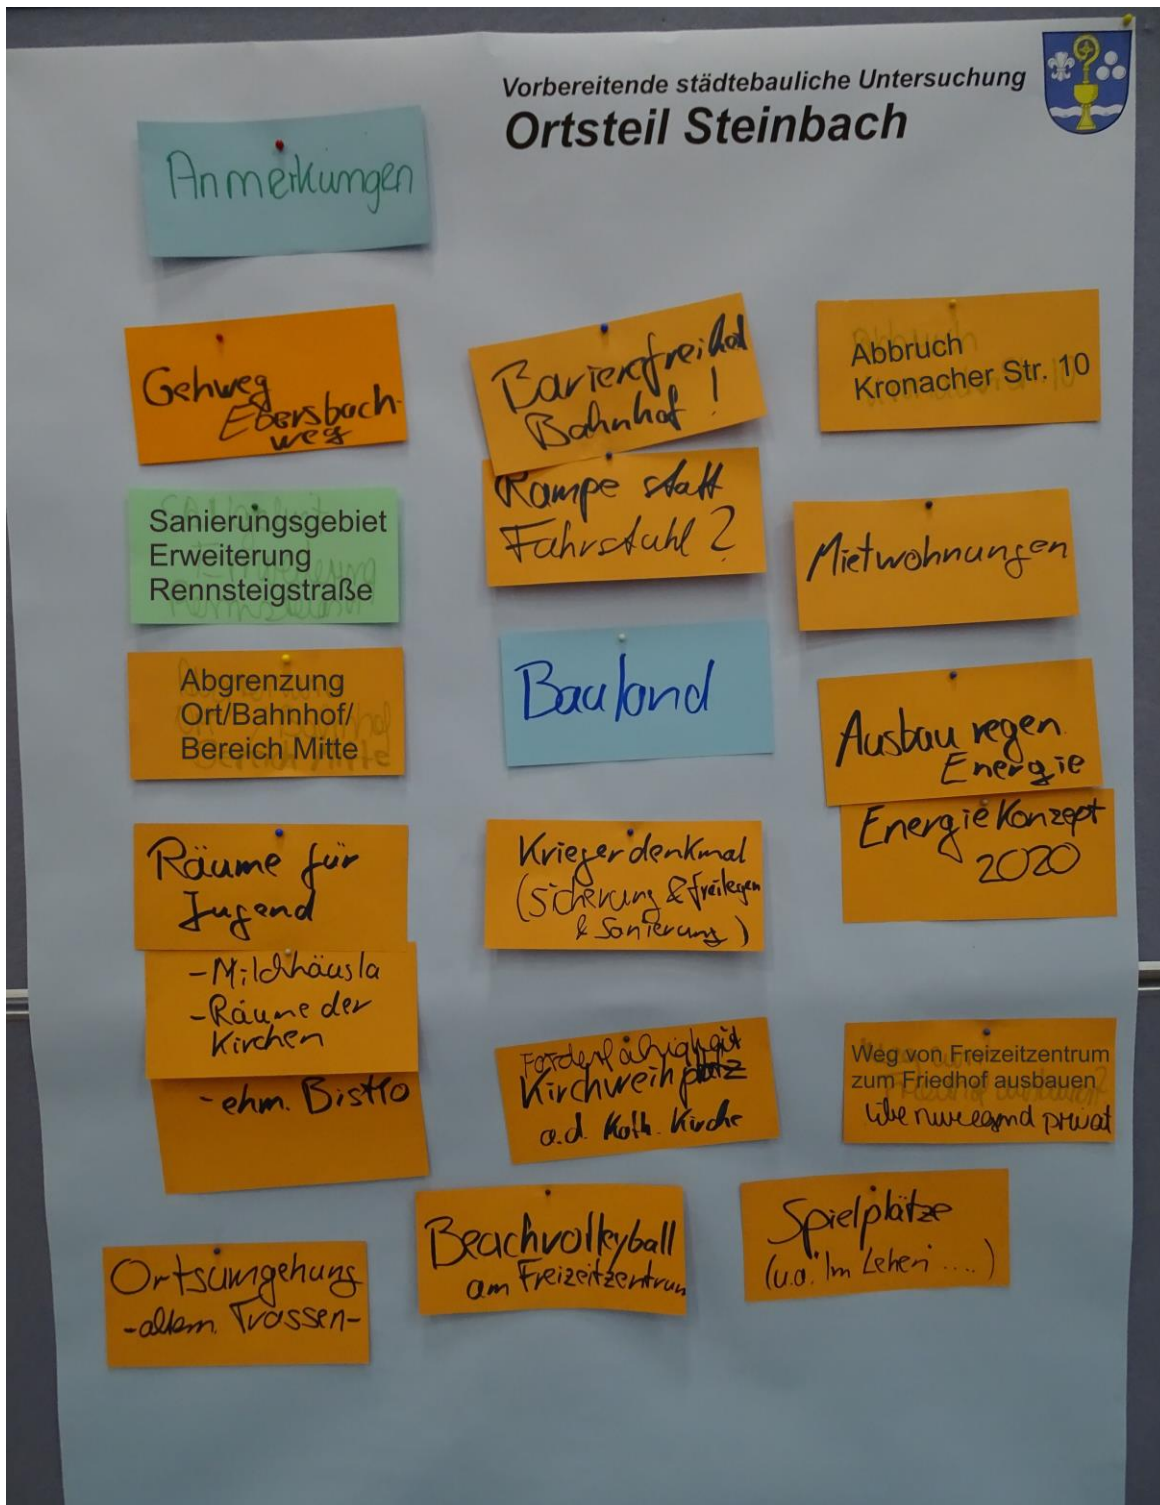 Vorbereitende städtebauliche Untersuchung
Ortsteil Steinbach
Anmerkungen
Gehweg
Ebersbach-
weg
Sanierungsgebiet
Erweiterung
Rennsteigstraße
Abgrenzung
Ort/Bahnhof/
Bereich Mitte
Räume für
Jugend
-Milchhäusla
-Räume der
Kirchen
-ehm. Bistro
Ortsumgehung
-altern. Trassen-
Barierefreihet
Bahnhof !
Rampe statt
Fahrstuhl ?
Bauland
Kriegerdenkmal
(Sicherung & freilegen
& Sanierung)
Förderfähigkeit
Kirchweihplatz
a.d. Kath. Kirche
Beachvolleyball
am Freizeitzentrum
Abbruch
Kronacher Str. 10
Mietwohnungen
Ausbau regen.
Energie
Energiekonzept
2020
Weg von Freizeitzentrum
zum Friedhof ausbauen
überwiegend privat
Spielplätze
(u.a. Im Lehen ....)